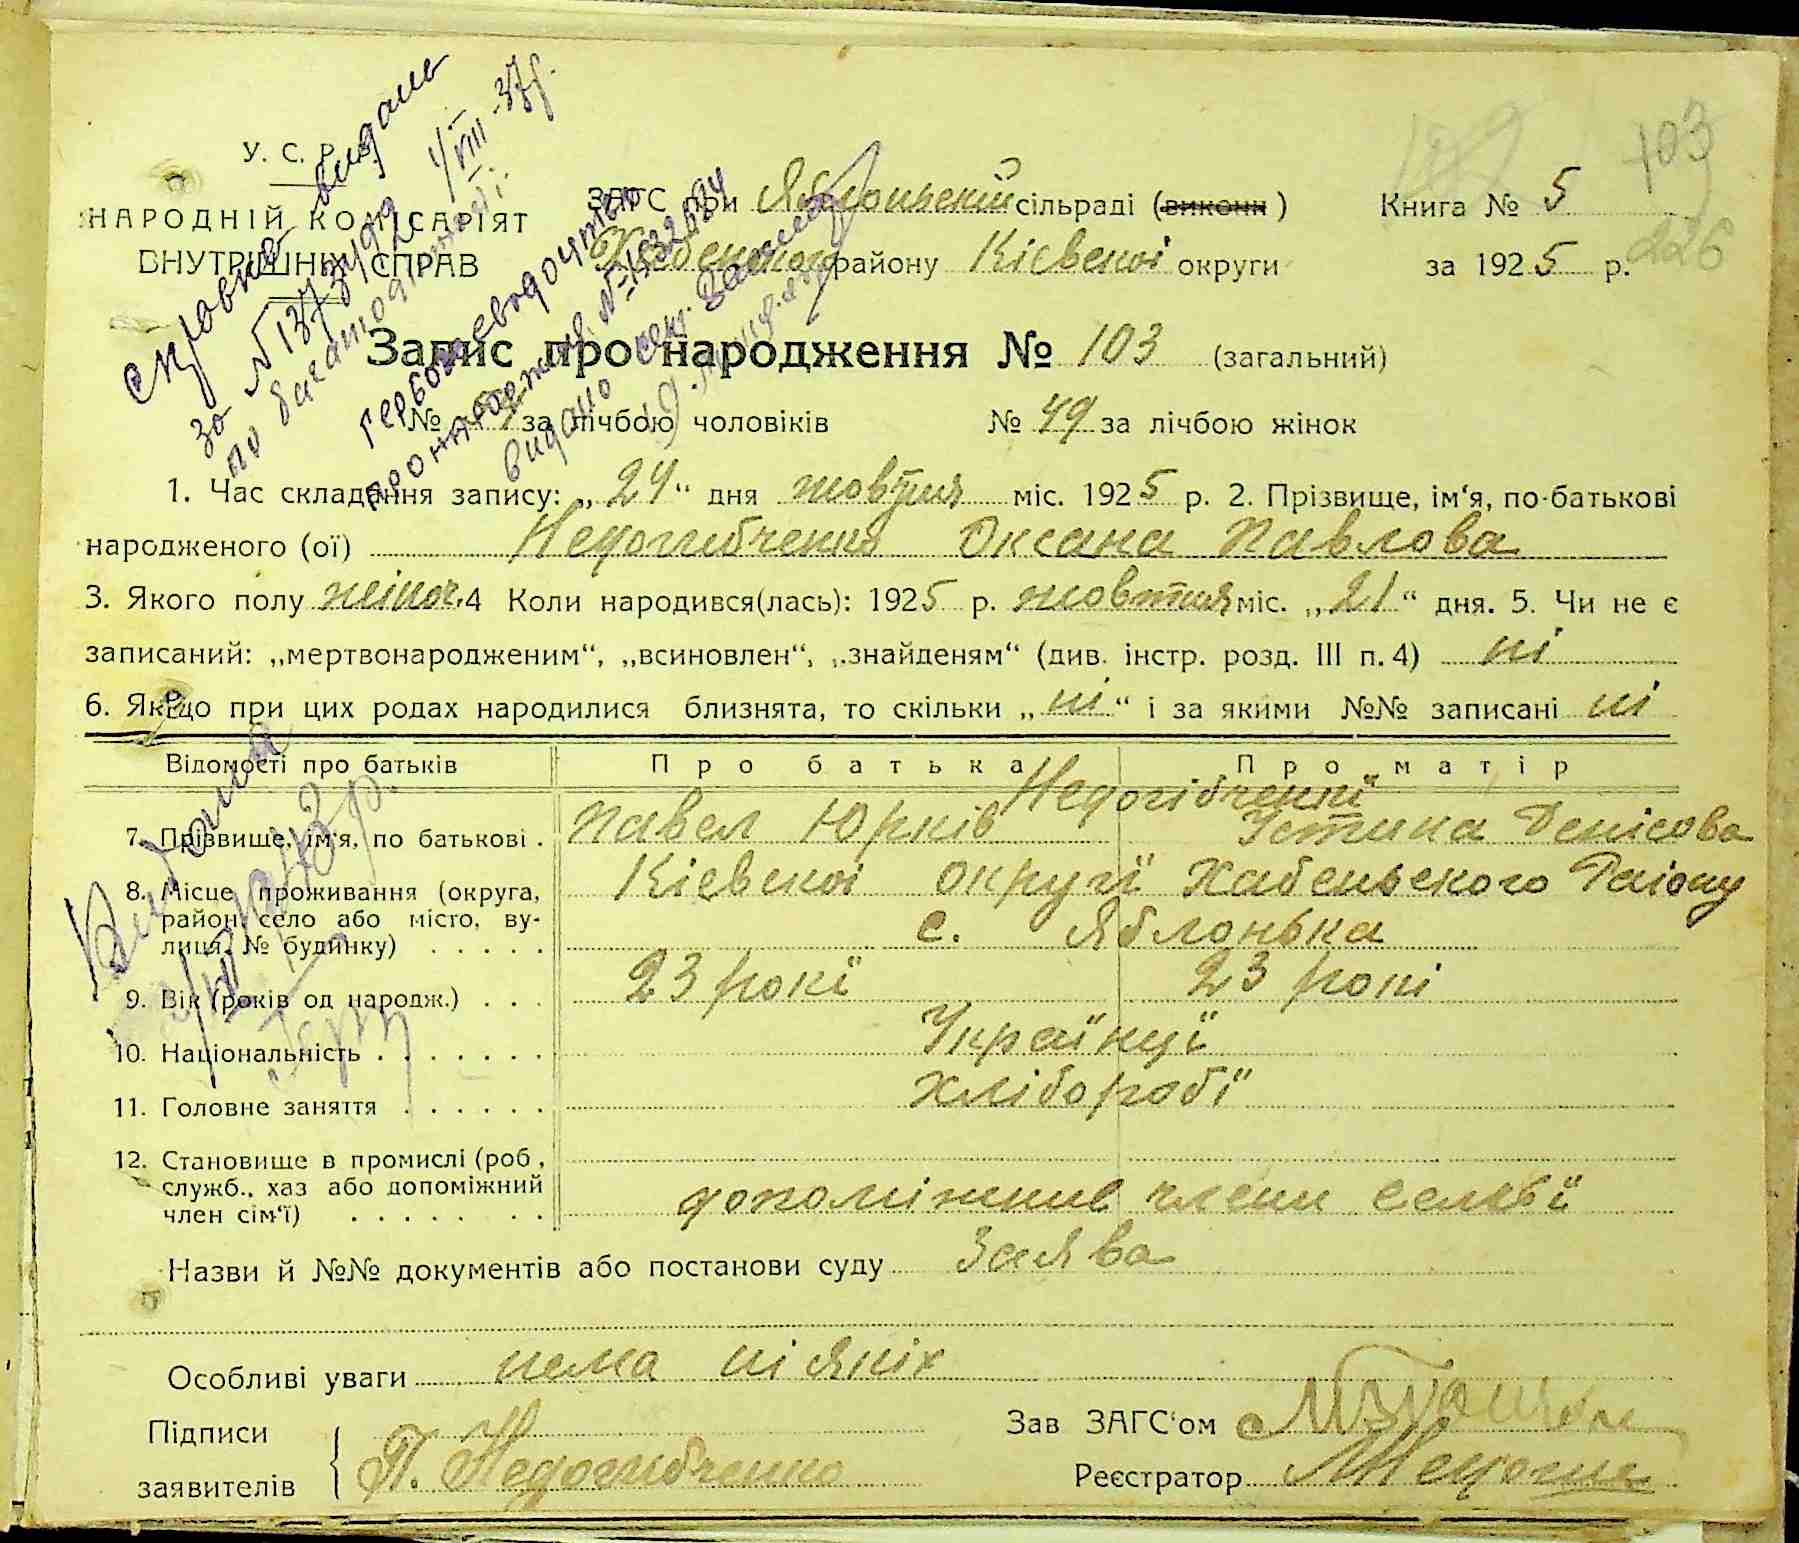 103
226
У. С. Р. Р.
НАРОДНІЙ КОМІСАРІЯТ
ВНУТРІШНІХ СПРАВ
ЗАГС при Яблонській сільраді (викони)
Книга № 5
Хабенського району Кієвскоі округи
за 1925 р.
Справка видана
за № 1373499 4/VIII-37р.
по багатодітності
Гербове свидоцтво
про народження №
видано
Запис про народження № 103 (загальний)
№ за лічбою чоловіків № 49 за лічбою жінок
1. Час складання запису: „24“ дня жовтня міс. 1925 р. 2. Прізвище, ім‘я, по-батькові
народженого (ої) Недогибченко Оксана Павлова
3. Якого полу жіноч. 4 Коли народився(лась): 1925 р. жовтня міс. „21“ дня. 5. Чи не є
записаний: „мертвонародженим“, „всиновлен“, „знайденям“ (див. інстр. розд. III п. 4) ні
6. Якщо при цих родах народилися близнята, то скільки „ні“ і за якими №№ записані ні
Відомості про батьків Про батька Про матір
Недогібченкі
7. Прізвище, ім‘я, по батькові . Павел Юрків Устина Денісова
8. Місце проживання (округа, Кієвскоі округї Хабенського Району
район, село або місто, ву- с. Яблонька
лиця, № будинку) . . . . .
9. Вік (років од народж.) . . . 23 рокї 23 рокі
10. Національність . . . . . . . Українцї
11. Головне заняття . . . . . . Хліборобї
12. Становище в промислі (роб.,
служб., хаз або допоміжний допоміжние члени семьї
член сім‘ї) . . . . . . .
Видана
Назви й №№ документів або постанови суду Заява
Особливі уваги нема ні якіх
Підписи
заявителів П. Недогибченко
Зав ЗАГС‘ом
Реєстратор